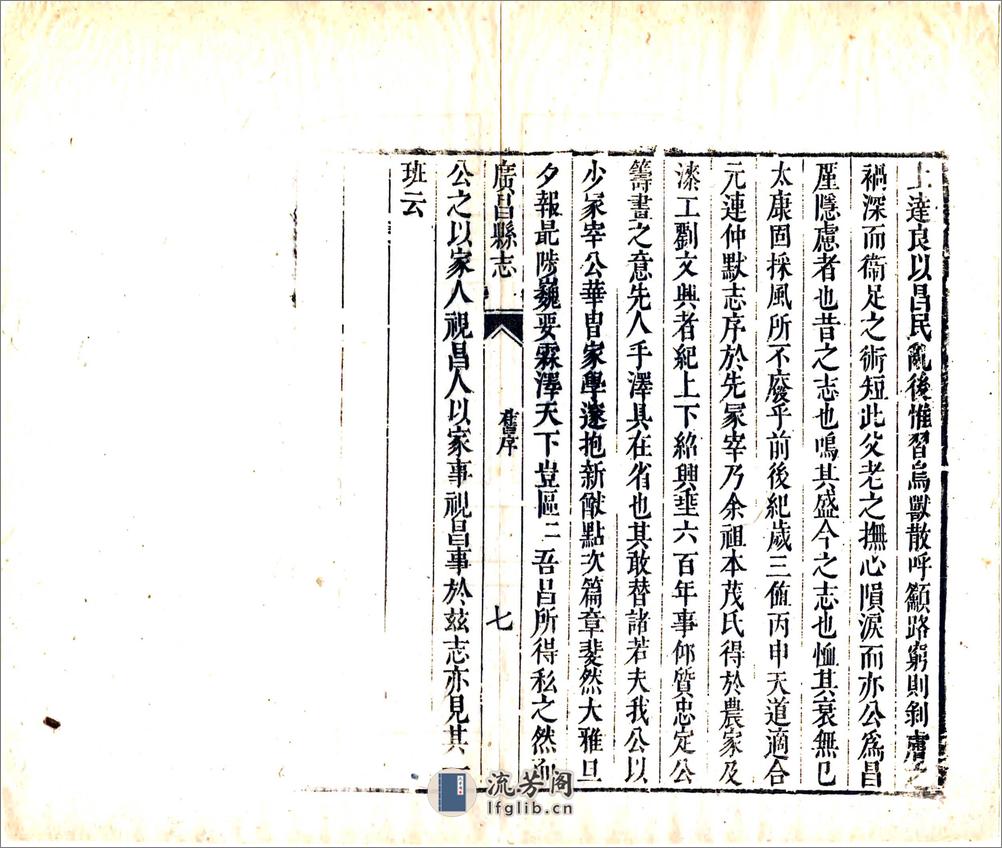 上達良以昌民亂後惟習鳥獸散呼籲路窮則剝膚之
禍深而衞足之術短此父老之撫心隕淚而亦公爲昌
厪隱慮者也昔之志也鳴其盛今之志也恤其衰無已
太康固採風所不廢乎前後紀歲三値丙申天道適合
元連仲默志序於先冡宰乃余祖本茂氏得於農家及
漆工劉文興者紀上下紹興垂六百年事仰質忠定公
籌書之意先人手澤具在省也其敢替諸若夫我公以
少冡宰公華胄家學邃抱新猷點次篇章斐然大雅旦
夕報最陟巍要霖澤天下豈區二吾昌所得私之然而
廣昌縣志
舊序
七
公之以家人視昌人以家事視昌事於兹志亦見其一
班云
流芳阁
lfglib.cn